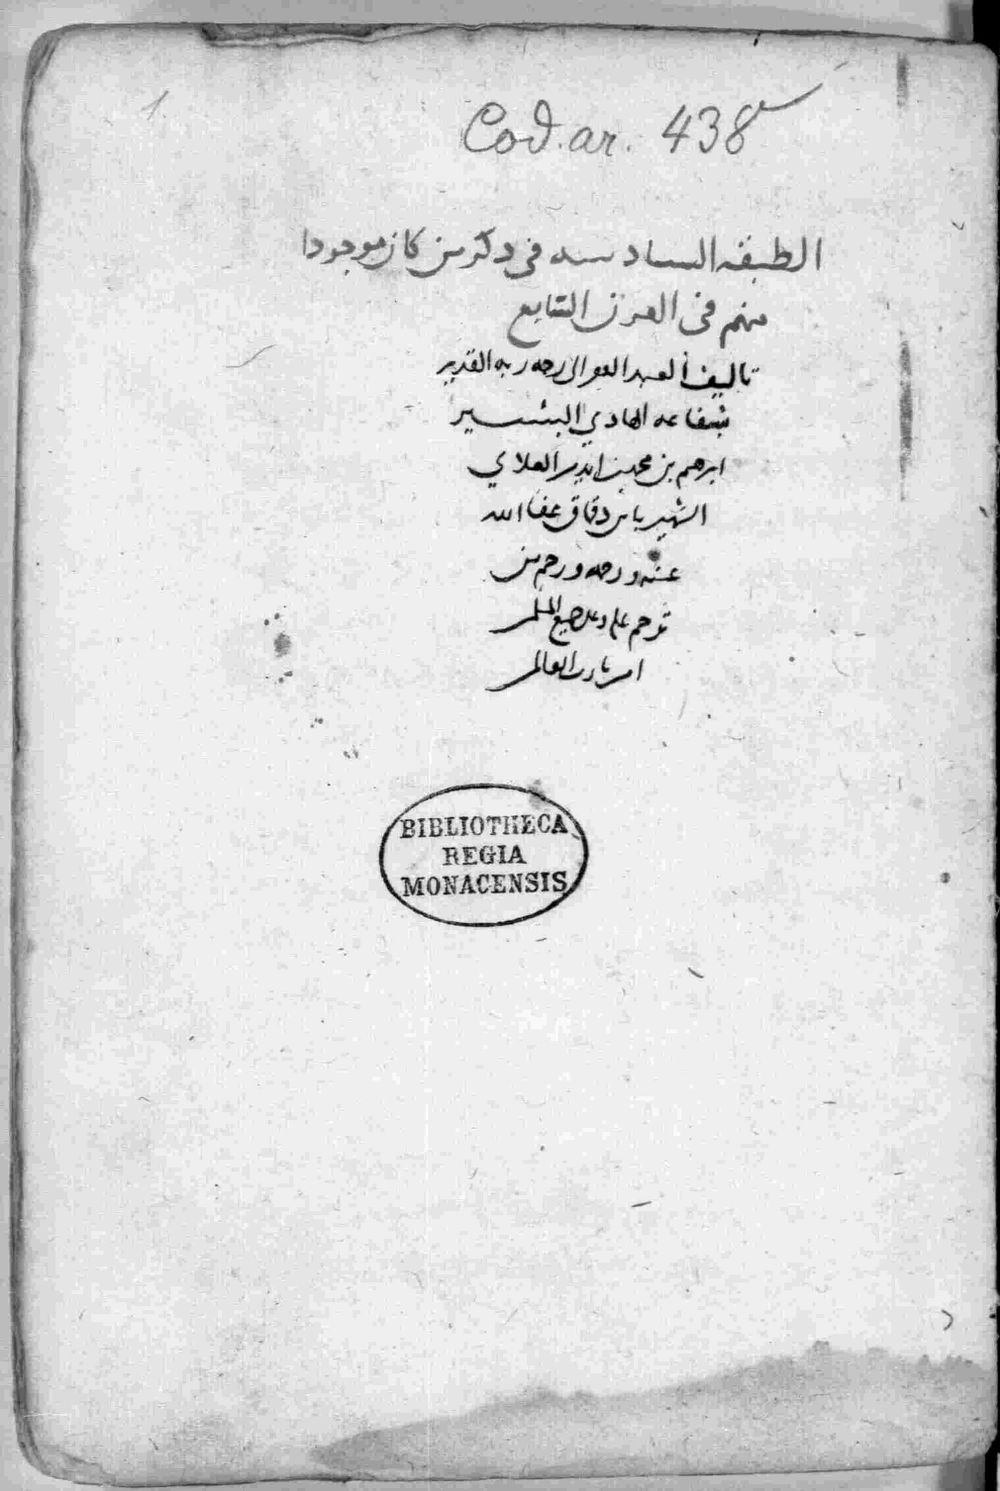 1.
Cod. ar. 438
الطبقه السادسه فى ذكر من كان موجودا
منهم فى القرن السابع
تاليف العبد الفقير الى رحمه ربه القدير
بشفاعه الهادي البشير
ابرهيم بن محمد بن ايدمر العلاي
الشهير بابن دقماق عفا الله
عنه ورحمه ورحم من
ترحم عليه وعلى جميع المسلمين
امين يا رب العالمين
BIBLIOTHECA
REGIA
MONACENSIS